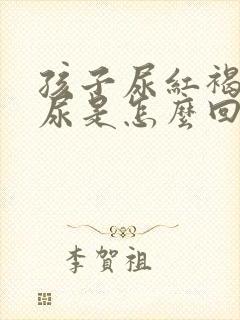 孩子尿紅褐
尿是怎麼回
李賀祖